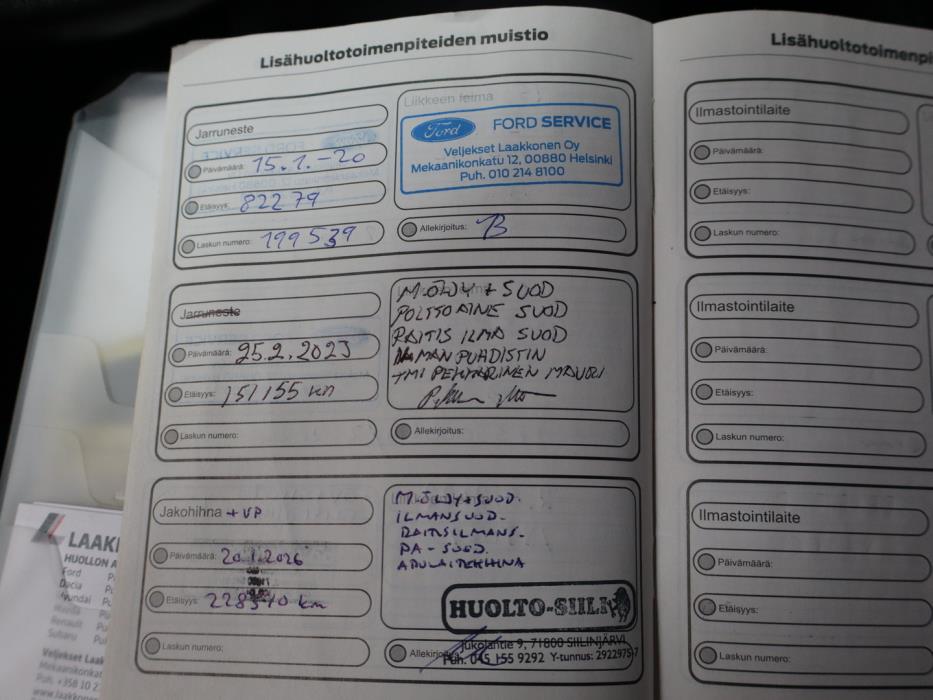 Lisähuoltotoimenpiteiden muistio
Jarruneste
Päivämäärä: 15.1.-20
Etäisyys: 82279
Laskun numero: 199539
Liikkeen leima
Ford FORD SERVICE
Veljekset Laakkonen Oy
Mekaanikonkatu 12, 00880 Helsinki
Puh. 010 214 8100
Allekirjoitus:
Jarruneste
Päivämäärä: 25.2.2023
Etäisyys: 151155 km
Laskun numero:
M.ÖLJY + SUOD
POLTTOAINE SUOD
RAITIS ILMA SUOD
ILMAN PUHDISTIN
TMI PEKKARINEN MAURI
Allekirjoitus:
Jakohihna + VP
Päivämäärä: 20.1.2026
Etäisyys: km
Laskun numero:
M.ÖLJY+SUOD.
ILMANSUOD.
RAITISILMANS.
PA-SUOD.
APULAITEHIHNA
HUOLTO-SIILI
Jukolantie 9, 71800 SIILINJÄRVI
Puh. 045 155 9292 Y-tunnus: 2922975-7
Lisähuoltotoimenpi
Ilmastointilaite
Päivämäärä:
Etäisyys:
Laskun numero:
Ilmastointilaite
Päivämäärä:
Etäisyys:
Laskun numero:
Ilmastointilaite
Päivämäärä:
Etäisyys:
Laskun numero:
LAAK
HUOLLON A
Ford
Dacia
Hyundai
Mazda
Renault
Subaru
Veljekset Laak
Mekaanikonkat
Puh. +358 10 2
www.laakkonen